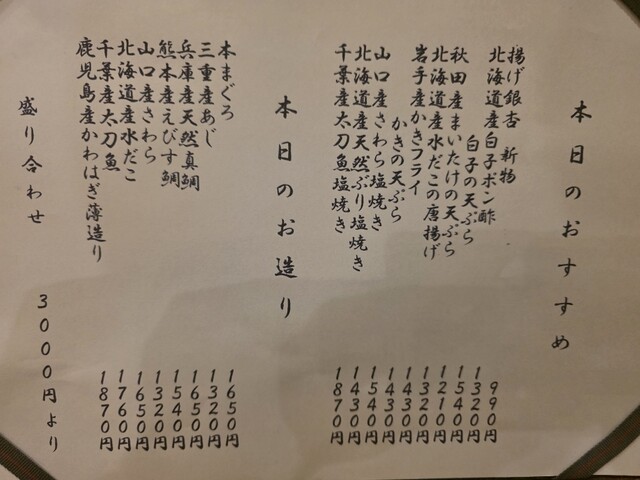 本日のおすすめ
揚げ銀杏 新物 990円
北海道産白子ポン酢 1320円
白子の天ぷら 1540円
秋田産まいたけの天ぷら 1210円
北海道産水だこの唐揚げ 1320円
岩手産かきフライ 1430円
かきの天ぷら 1430円
山口産さわら塩焼き 1540円
北海道産天然ぶり塩焼き 1430円
千葉産太刀魚塩焼き 1870円
本日のお造り
本まぐろ 1650円
三重産あじ 1320円
兵庫産天然真鯛 1650円
熊本産えびす鯛 1540円
山口産さわら 1320円
北海道産水だこ 1650円
千葉産太刀魚 1760円
鹿児島産かわはぎ薄造り 1870円
盛り合わせ 3000円より